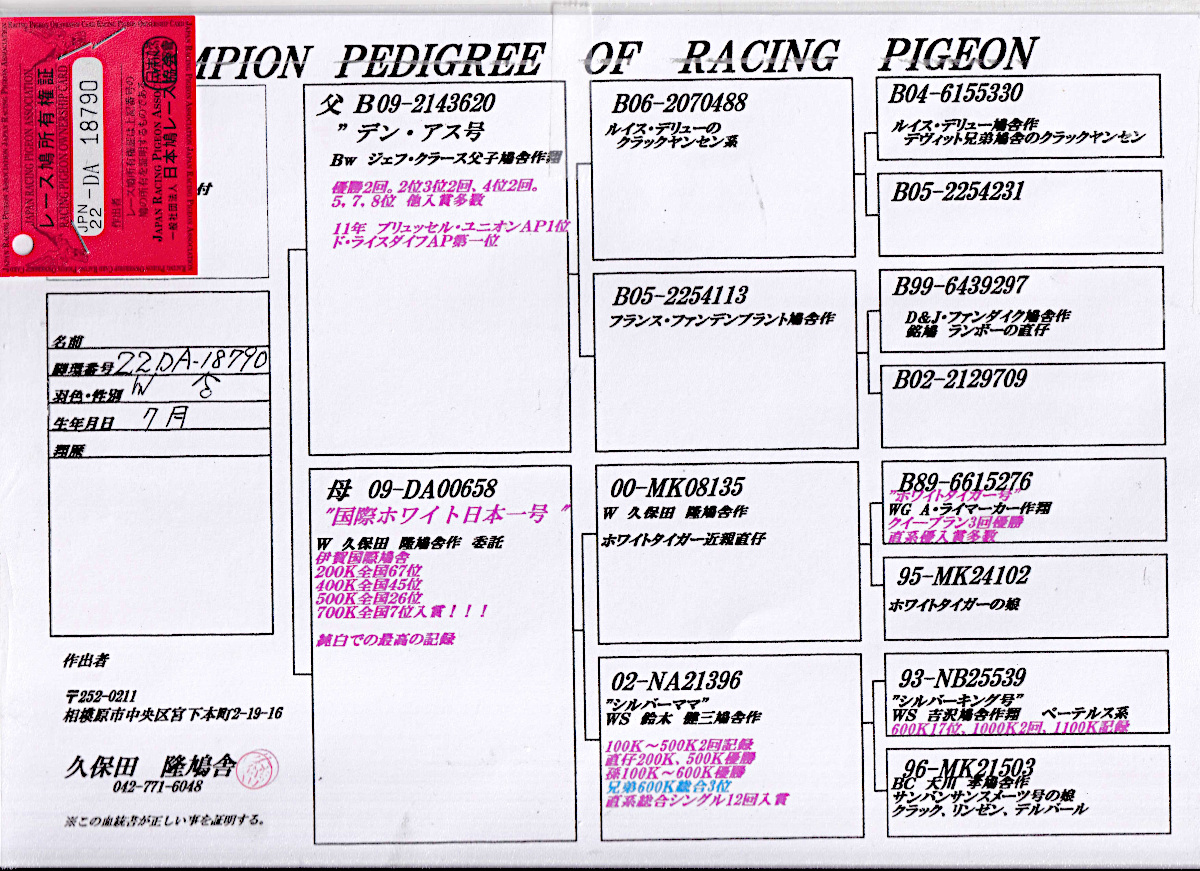 MPION PEDIGREE OF RACING PIGEON
JAPAN RACING PIGEON ASSOCIATION
レース鳩所有権証
RACING PIGEON OWNERSHIP CARD
JPN
22-DA 18790
作出者
レース鳩所有権証は上記番号の
鳩の所有を証明するものである
JAPAN RACING PIGEON ASSO
一般社団法人 日本鳩レース協会
付
名前
脚環番号 22DA-18790
羽色・性別 W ♂
生年月日 7月
翔歴
作出者
〒252-0211
相模原市中央区宮下本町2-19-16
久保田 隆鳩舎
042-771-6048
※この血統書が正しい事を証明する。
父 B09-2143620
”デン・アス号
Bw ジェフ・クラース父子鳩舎作翔
優勝2回。2位3位2回、4位2回。
5, 7, 8位 他入賞多数
11年 ブリュッセル・ユニオンAP1位
ド・ライスダイフAP第一位
母 09-DA00658
”国際ホワイト日本一号 ”
W 久保田 隆鳩舎作 委託
伊賀国際鳩舎
200K全国67位
400K全国45位
500K全国26位
700K全国7位入賞！！！
純白での最高の記録
B06-2070488
ルイス・デリューの
クラックヤンセン系
B05-2254113
フランス・ファンデンブラント鳩舎作
00-MK08135
W 久保田 隆鳩舎作
ホワイトタイガー近親直仔
02-NA21396
”シルバーママ”
WS 鈴木 健三鳩舎作
100K～500K2回記録
直仔200K、500K優勝
孫100K～600K優勝
兄弟600K総合3位
直系総合シングル12回入賞
B04-6155330
ルイス・デリュー鳩舎作
デヴィット兄弟鳩舎のクラックヤンセン
B05-2254231
B99-6439297
D&J・ファンダイク鳩舎作
銘鳩 ランボーの直仔
B02-2129709
B89-6615276
”ホワイトタイガー号”
WG A・ライマーカー作翔
クイーブラン3回優勝
直系優入賞多数
95-MK24102
ホワイトタイガーの娘
93-NB25539
”シルバーキング号”
WS 吉沢鳩舎作翔 ペーテルス系
600K17位、1000K2回、1100K記録
96-MK21503
BC 大川 孝鳩舎作
サンバンサンスメーツ号の娘
クラック、リンゼン、デルバール